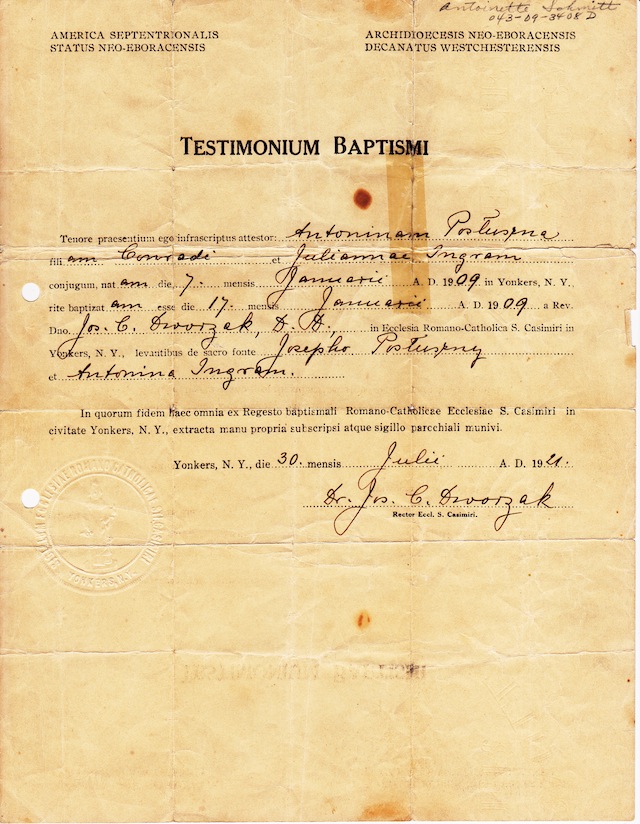 Antoinette Schmitt
043-09-3408 D
AMERICA SEPTENTRIONALIS
STATUS NEO-EBORACENSIS
ARCHIDIOECESIS NEO-EBORACENSIS
DECANATUS WESTCHESTERENSIS
TESTIMONIUM BAPTISMI
Tenore praesentium ego infrascriptus attestor: Antoninam Posłuszna
fili am Conradi et Juliannae Ingram
conjugum, nat am die 7. mensis Januarii A. D. 1909 in Yonkers, N. Y.,
rite baptizat am esse die 17. mensis Januarii A. D. 1909 a Rev.
Dno. Jos. C. Dworzak, D. D., in Ecclesia Romano-Catholica S. Casimiri in
Yonkers, N. Y., levantibus de sacro fonte Josepho Posłuszny
et Antonina Ingram.
In quorum fidem haec omnia ex Regesto baptismali Romano-Catholicae Ecclesiae S. Casimiri in
civitate Yonkers, N. Y., extracta manu propria subscripsi atque sigillo parochiali munivi.
Yonkers, N. Y., die 30. mensis Julii A. D. 1921.
Dr. Jos. C. Dworzak
Rector Eccl. S. Casimiri.
YONKERS, N.Y.